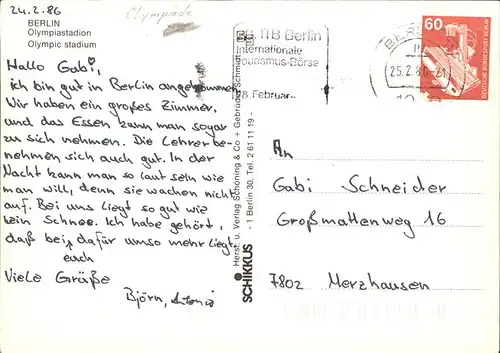 24.2.86
Olympiade
BERLIN
Olympiastadion
Olympic stadium
Hallo Gabi,
ich bin gut in Berlin angekommen.
Wir haben ein großes Zimmer,
und das Essen kann man sogar
zu sich nehmen. Die Lehrer be-
nehmen sich auch gut. In der
Nacht kann man so laut sein wie
man will, denn sie wachen nicht
auf. Bei uns liegt so gut wie
kein Schnee. Ich habe gehört,
daß bei euch dafür umso mehr liegt.
Viele Grüße
Björn, Antonio
SCHIKKUS
Herst. u. Verlag Schöning & Co + Gebrüder Schmidt
- 1 Berlin 30, Tel. 2 61 11 19 -
ITB Berlin
Internationale
Tourismus-Börse
8. Februar
BER
25.2.86-21
60
DEUTSCHE BUNDESPOST BERLIN
An
Gabi Schneider
Großmattenweg 16
7802 Merzhausen